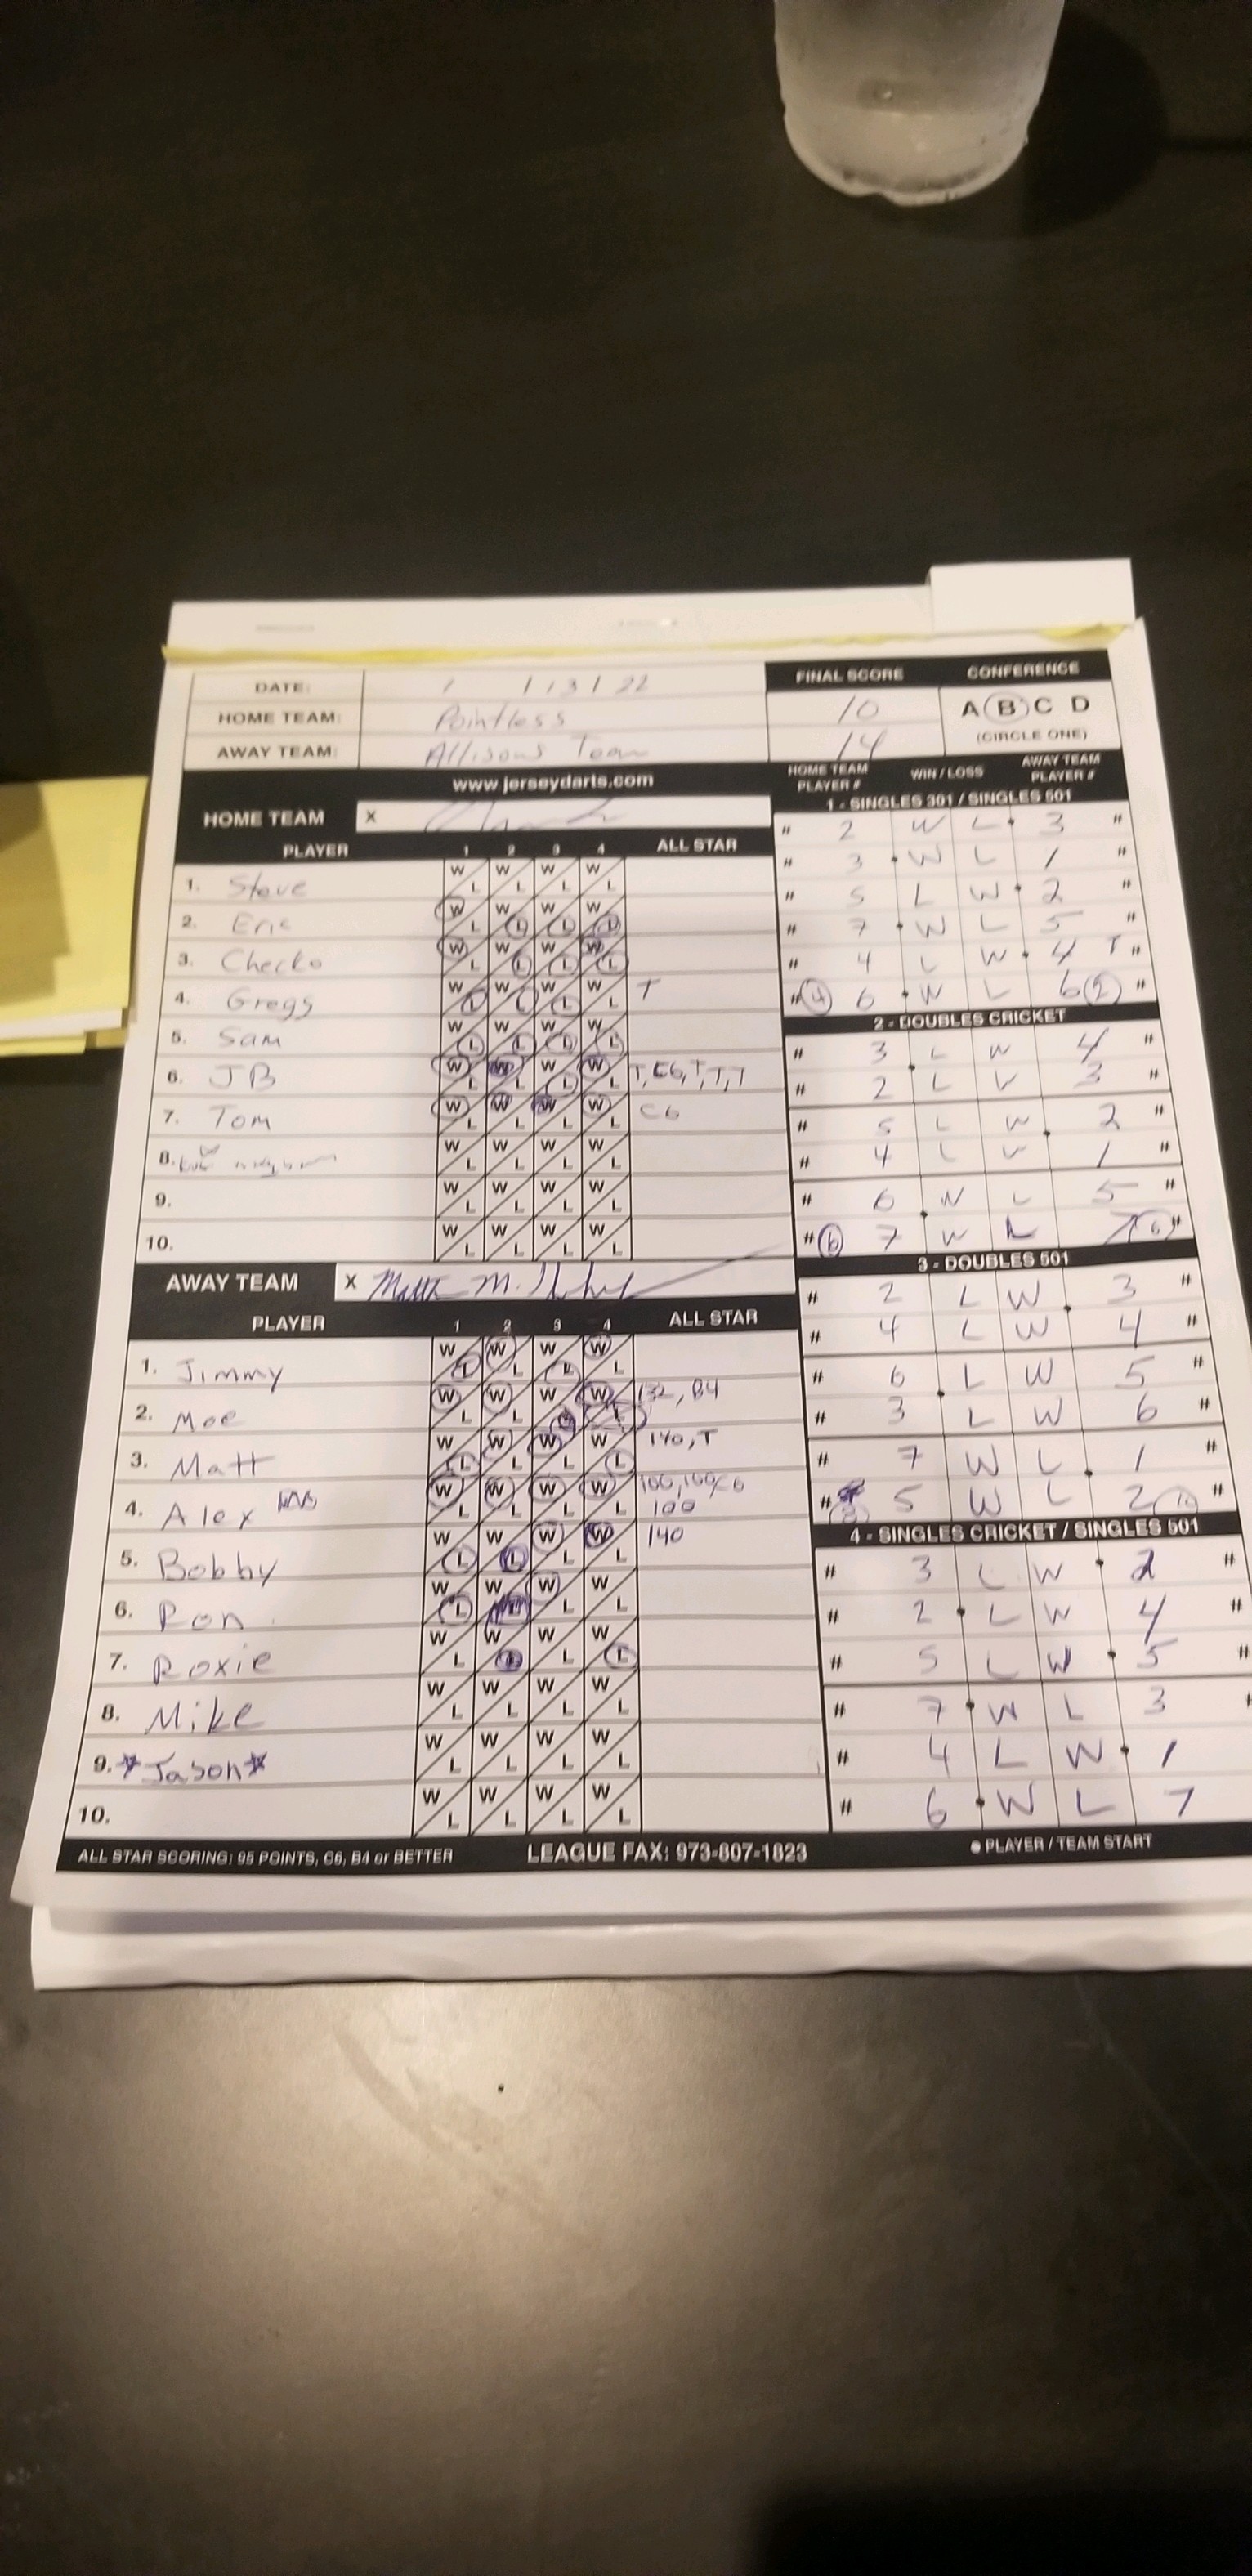 DATE: 1 / 13 / 22
HOME TEAM: Pointless
AWAY TEAM: Allisons Team
FINAL SCORE
10
14
CONFERENCE
A B C D
(CIRCLE ONE)
www.jerseydarts.com
HOME TEAM X
PLAYER 1 2 3 4 ALL STAR
1. Steve W L W L W L W L
2. Eric W L W L W L W L
3. Checko W L W L W L W L
4. Gregg W L W L W L W L T
5. Sam W L W L W L W L
6. JB W L W L W L W L T, C6, T, T, T
7. Tom W L W L W L W L C6
8. W L W L W L W L
9. W L W L W L W L
10. W L W L W L W L
AWAY TEAM X Matth M.
PLAYER 1 2 3 4 ALL STAR
1. Jimmy W L W L W L W L
2. Moe W L W L W L W L 132, B4
3. Matt W L W L W L W L 140, T
4. Alex W L W L W L W L 100, 100, C6
100
5. Bobby W L W L W L W L 140
6. Ron W L W L W L W L
7. Roxie W L W L W L W L
8. Mike W L W L W L W L
9. *Jason* W L W L W L W L
10. W L W L W L W L
HOME TEAM PLAYER # WIN / LOSS AWAY TEAM PLAYER #
1 - SINGLES 301 / SINGLES 501
# 2 W L 3 #
# 3 W L 1 #
# 5 L W 2 #
# 7 W L 5 #
# 4 L W 4 T #
# 4 6 W L 6 2 #
2 - DOUBLES CRICKET
# 3 L W 4
# 2 L W 3 #
# 5 L W 2 #
# 4 L W 1 #
# 6 W L 5 #
# 6 7 W L 7 6 #
3 - DOUBLES 501
# 2 L W 3 #
# 4 L W 4 #
# 6 L W 5 #
# 3 L W 6 #
# 7 W L 1 #
# 5 W L 2 10 #
4 - SINGLES CRICKET / SINGLES 501
# 3 L W 2 #
# 2 L W 4 #
# 5 L W 5 #
# 7 W L 3 #
# 4 L W 1
# 6 W L 7
ALL STAR SCORING: 95 POINTS, C6, B4 or BETTER
LEAGUE FAX: 973-807-1823
PLAYER / TEAM START